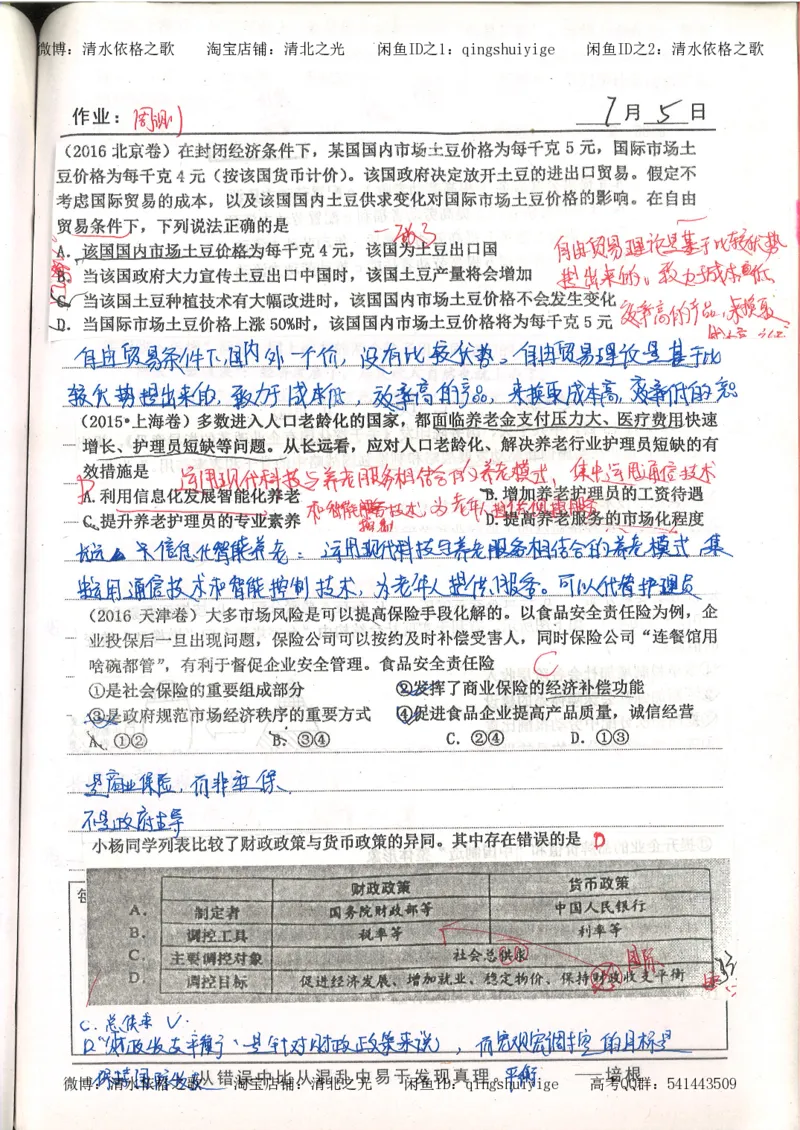 微博：清水依格之歌 淘宝店铺：清北之光 闲鱼ID之1：qingshuiyige 闲鱼ID之2：清水依格之歌
作业：周测1 7月5日
（2016 北京卷）在封闭经济条件下，某国国内市场土豆价格为每千克 5 元，国际市场土
豆价格为每千克 4 元（按该国货币计价）。该国政府决定放开土豆的进出口贸易。假定不
考虑国际贸易的成本，以及该国国内土豆供求变化对国际市场土豆价格的影响。在自由
贸易条件下，下列说法正确的是
一致了
A．该国国内市场土豆价格为每千克 4 元，该国为土豆出口国
B．当该国政府大力宣传土豆出口中国时，该国土豆产量将会增加
C．当该国土豆种植技术有大幅改进时，该国国内市场土豆价格不会发生变化
D．当国际市场土豆价格上涨 50%时，该国国内市场土豆价格将为每千克 5 元
自由贸易理论是基于比较优势
提出来的。致力于成本低
效率高的产品，来换取
自由贸易条件下，国内外一个价，没有比较优势。自由贸易理论是基于比
较优势提出来的，致力于成本低，效率高的产品，来换取成本高，效率低的产品
（2015•上海卷）多数进入人口老龄化的国家，都面临养老金支付压力大、医疗费用快速
增长、护理员短缺等问题。从长远看，应对人口老龄化、解决养老行业护理员短缺的有
效措施是
运用现代科技与养老服务相结合的养老模式，集中运用通信技术
A.利用信息化发展智能化养老 B.增加养老护理员的工资待遇
和智能控制技术，为老年人提供
C.提升养老护理员的专业素养 D.提高养老服务的市场化程度
信息化智能养老：运用现代科技与养老服务相结合的养老模式，集
中运用通信技术和智能控制技术，为老年人提供服务。可以代替护理员
（2016 天津卷）大多市场风险是可以提高保险手段化解的。以食品安全责任险为例，企
业投保后一旦出现问题，保险公司可以按约及时补偿受害人，同时保险公司“连餐馆用
啥碗都管”，有利于督促企业安全管理。食品安全责任险 C
①是社会保险的重要组成部分 ②发挥了商业保险的经济补偿功能
③是政府规范市场经济秩序的重要方式 ④促进食品企业提高产品质量，诚信经营
A．①② B．③④ C．②④ D．①③
是商业保险，而非社保
不是政府主导
小杨同学列表比较了财政政策与货币政策的异同。其中存在错误的是 D
财政政策 货币政策
A． 制定者 国务院财政部等 中国人民银行
B． 调控工具 税率等 利率等
C． 主要调控对象 社会总供求
D． 调控目标 促进经济发展、增加就业、稳定物价、保持财政收支平衡
国际
C．总供求 √．
D．“财政收支平衡”是针对财政政策来说，而宏观调控的目标是
保持国际收支平衡
从错误中比从混乱中易于发现真理 ——培根
微博：清水依格之歌 淘宝店铺：清北之光 闲鱼ID：qingshuiyige 高考QQ群：541443509